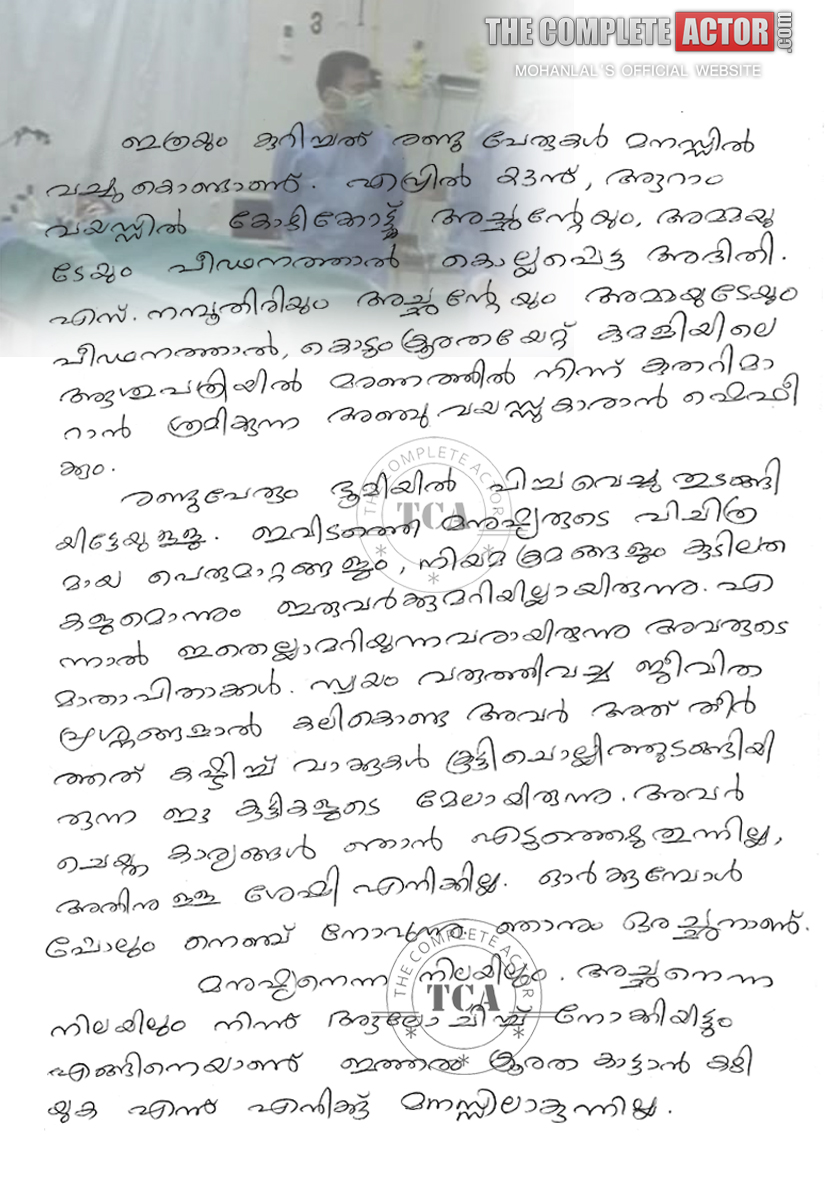 THE COMPLETE ACTOR.com
MOHANLAL'S OFFICIAL WEBSITE
3
ഇത്രയും കുറിച്ചത് രണ്ടു പേരുകൾ മനസ്സിൽ
വച്ചുകൊണ്ടാണ്. ഏപ്രിൽ ആറാം
വയസ്സിൽ കോഴിക്കോട്ട് അച്ഛന്റേയും, അമ്മയു
ടേയും പീഢനത്താൽ കൊല്ലപ്പെട്ട അദിതി.
എസ്. നമ്പൂതിരിയും അച്ഛന്റേയും അമ്മയുടേയും
പീഢനത്താൽ, കൊടും ക്രൂരതയേറ്റ് കുമളിയിലെ
ആശുപത്രിയിൽ മരണത്തിൽ നിന്ന് കുതറിമാ
റാൻ ശ്രമിക്കുന്ന അഞ്ചു വയസ്സുകാരൻ ഷെഫീ
ക്കും.
രണ്ടുപേരും ഭൂമിയിൽ പിച്ചവെച്ചു തുടങ്ങി
യിട്ടേയുള്ളു. ഇവിടത്തെ മനുഷ്യരുടെ വിചിത്ര
മായ പെരുമാറ്റങ്ങളും, നിയമ ക്രമങ്ങളും കുടിലത
കളുമൊന്നും ഇരുവർക്കുമറിയില്ലായിരുന്നു. എ
ന്നാൽ ഇതെല്ലാമറിയുന്നവരായിരുന്നു അവരുടെ
മാതാപിതാക്കൾ. സ്വയം വരുത്തിവച്ച ജീവിത
പ്രശ്നങ്ങളാൽ കലികൊണ്ട അവർ അത് തീർ
ത്തത് കഷ്ടിച്ച് വാക്കുകൾ കൂട്ടിചൊല്ലിത്തുടങ്ങിയി
രുന്ന ഈ കുട്ടികളുടെ മേലായിരുന്നു. അവർ
ചെയ്ത കാര്യങ്ങൾ ഞാൻ എടുത്തെഴുതുന്നില്ല,
അതിനു ള്ള ശേഷി എനിക്കില്ല. ഓർക്കുമ്പോൾ
പ്പോലും നെഞ്ച് നോവുന്നു. ഞാനും ഒരച്ഛനാണ്.
മനുഷ്യനെന്ന നിലയിലും. അച്ഛനെന്ന
നിലയിലും നിന്ന് ആലോചിച്ച് നോക്കിയിട്ടും
എങ്ങിനെയാണ് ഇത്തരം ക്രൂരത കാട്ടാൻ കഴി
യുക എന്ന് എനിക്ക് മനസ്സിലാകുന്നില്ല.
THE COMPLETE ACTOR
TCA
THE COMPLETE ACTOR
TCA